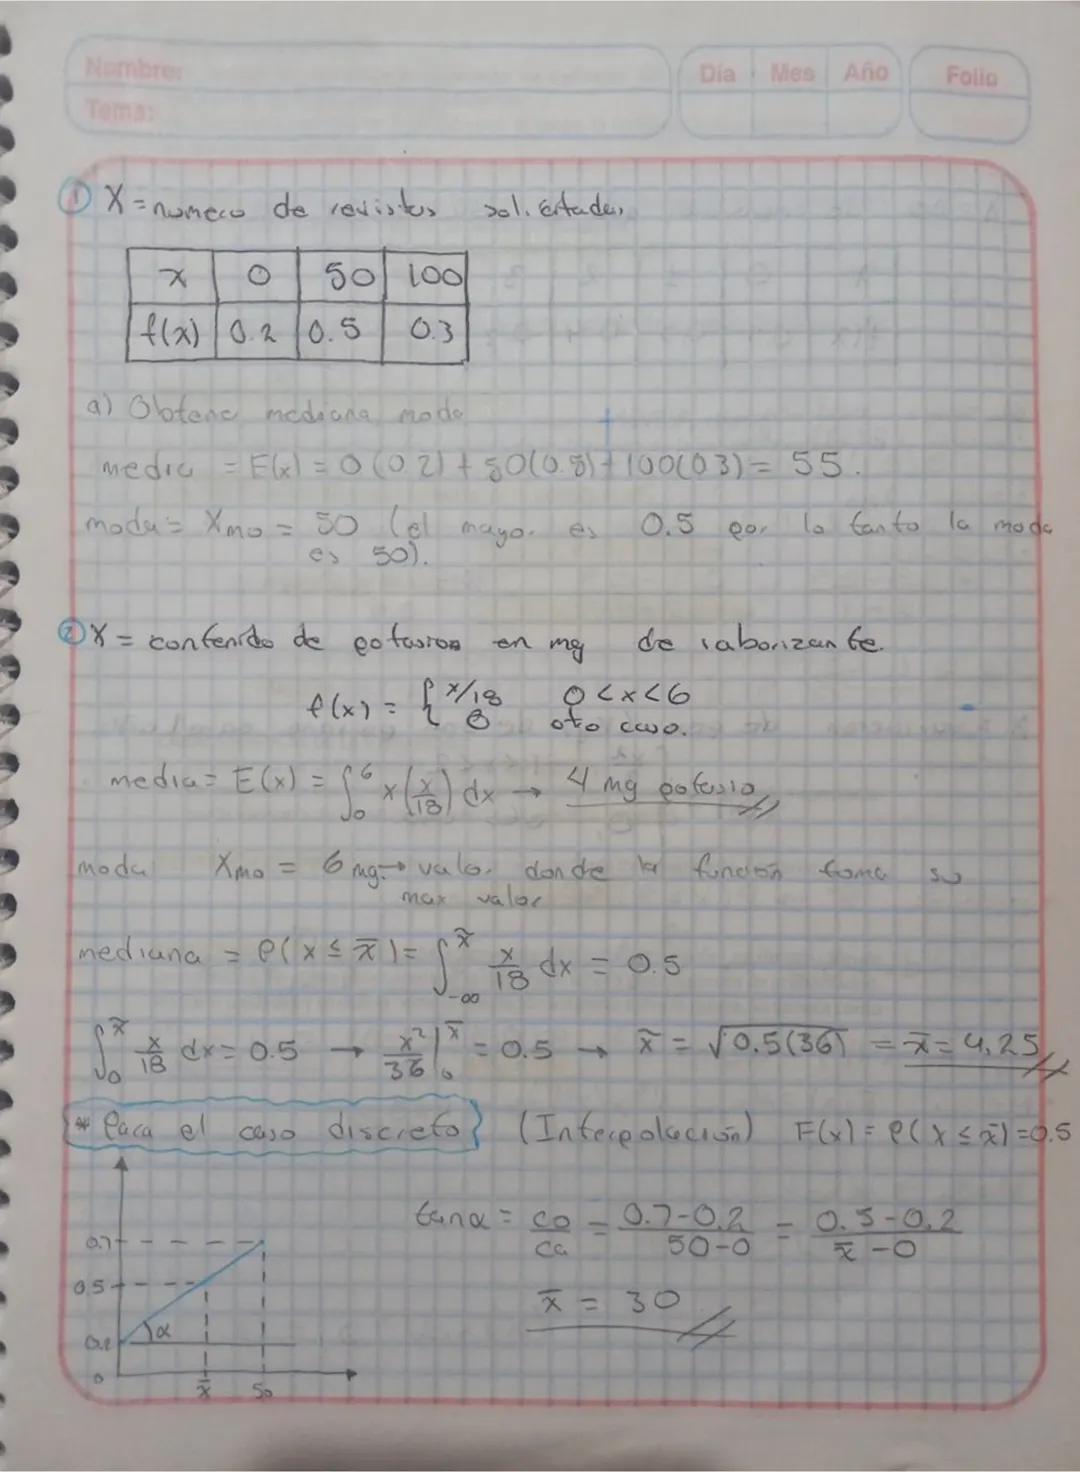 Nombre:
Tema:
Día Mes Año
Folio
① X = numero de revistas solicitadas
x 0 50 100
f(x) 0.2 0.5 0.3
a) Obtener mediana, moda
media = E(x) = 0(0.2) + 50(0.5) + 100(0.3) = 55.
moda = Xmo = 50 (el mayor es 0.5 por lo tanto la moda
es 50).
② X = contenido de potasio en mg de saborizante.
f(x) = { x/18 0 < x < 6
0 otro caso.
media = E(x) = ∫₀⁶ x(x/18) dx → 4 mg potasio
moda Xmo = 6 mg → valor donde la función toma su
max valor
mediana = P(x ≤ x̃) = ∫_{-∞}^{x̃} x/18 dx = 0.5
∫₀^{x̃} x/18 dx = 0.5 → x²/36 |₀^{x̃} = 0.5 → x̃ = √0.5(36) = x̃ = 4.25
* Para el caso discreto (Interpolación) F(x) = P(X ≤ x̃) = 0.5
tan α = co/ca = 0.7-0.2/50-0 = 0.5-0.2/x̃-0
x̃ = 30
0.7
0.5
α
0.2
0
x̃ 50